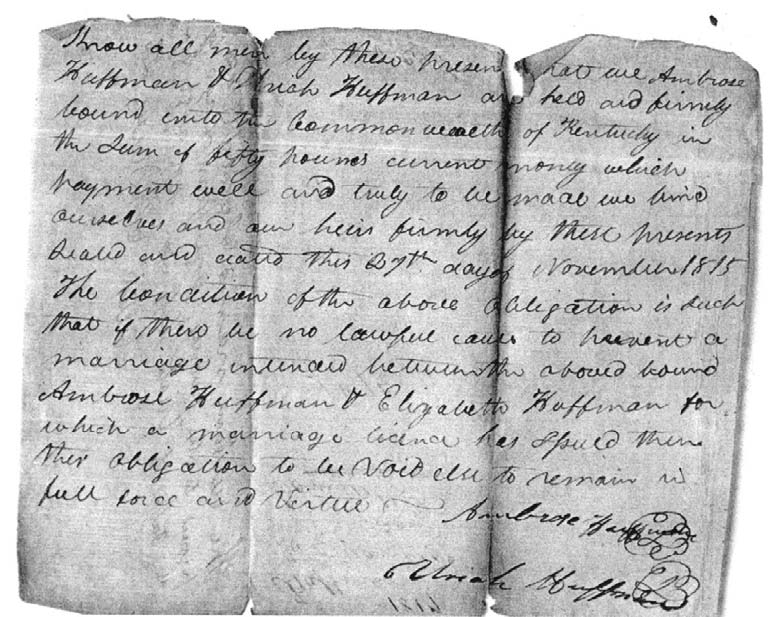 Know all men by these presents that we Ambrose
Huffman & Uriah Huffman are held and firmly
bound unto the Commonwealth of Kentucky in
the Sum of fifty pounds current money which
payment well and truly to be made we bind
ourselves and our heirs firmly by these presents
Seald and dated this 27th day of November 1815
The Condition of the above obligation is Such
that if there be no lawful cause to prevent a
marriage intended between the above bound
Ambrose Huffman & Elizabeth Huffman for
which a marriage licence has Issued then
this obligation to be Void else to remain in
full force and Virtue
Ambrose Huffman
Uriah Huffman